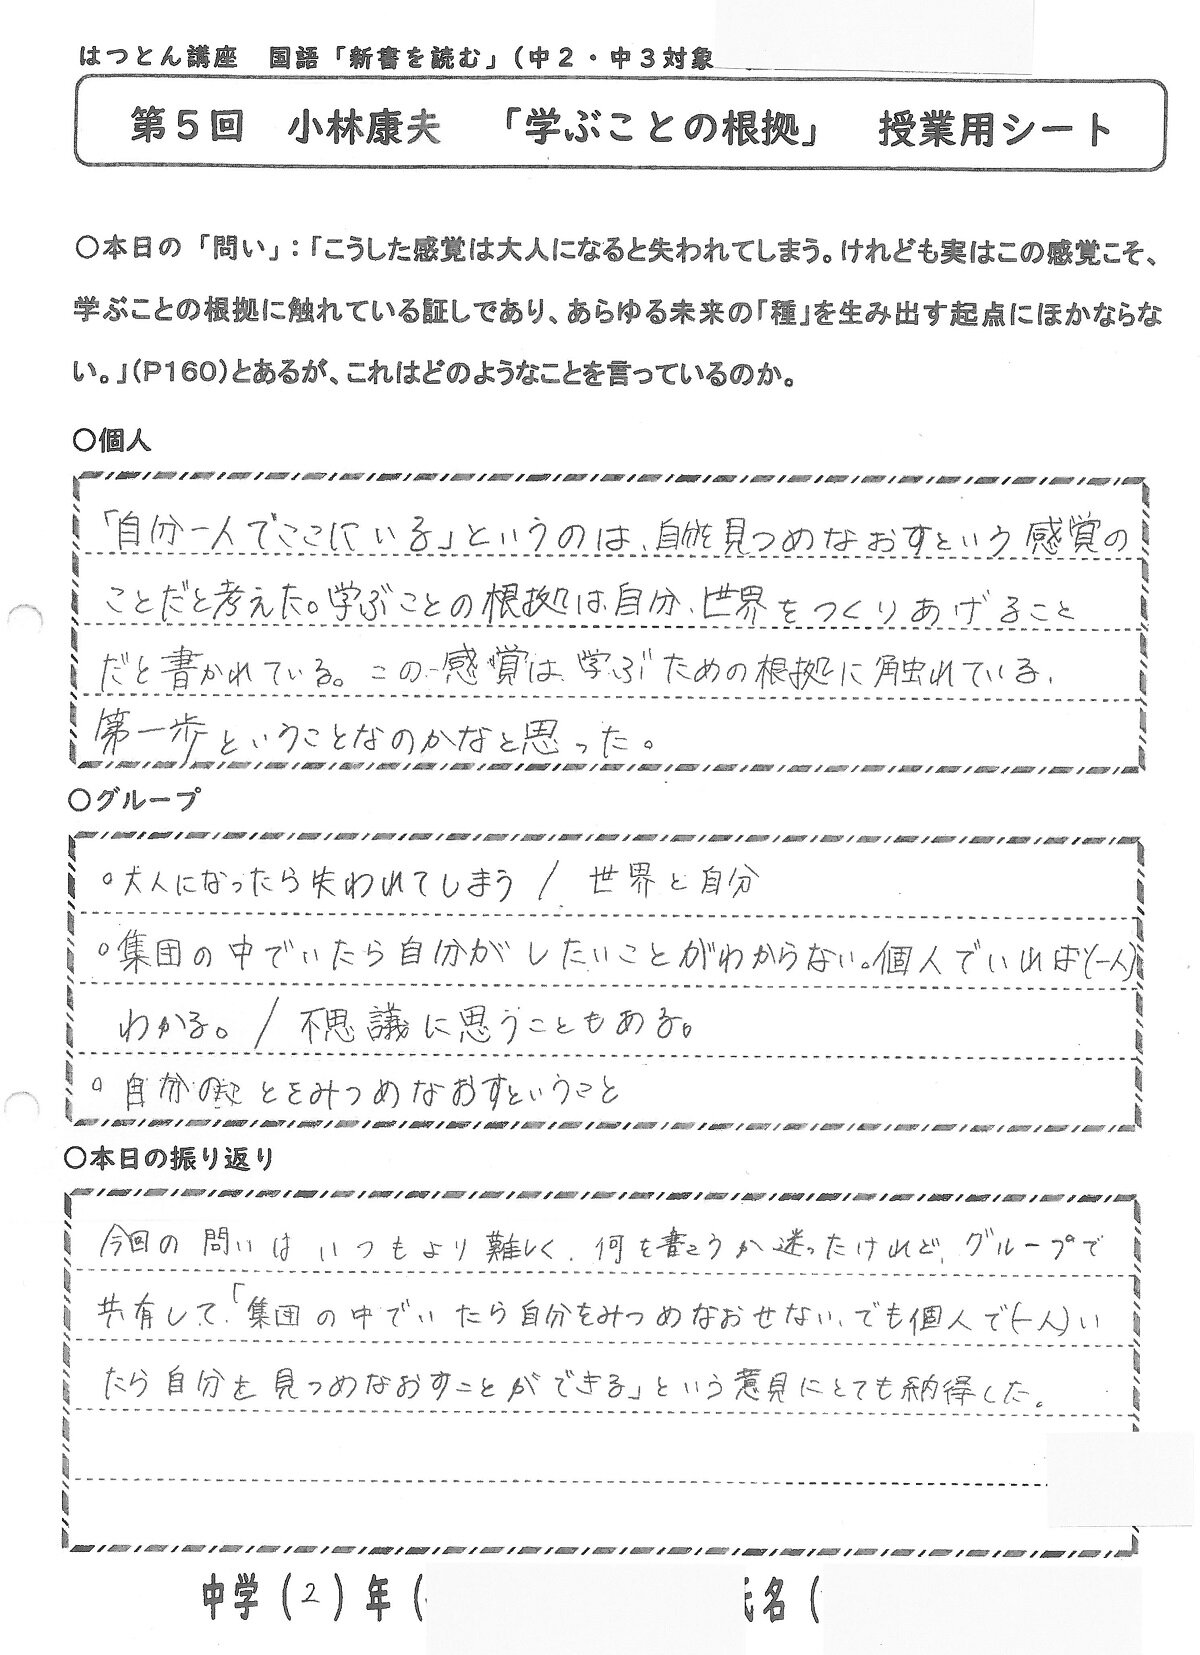 はつとん講座　国語「新書を読む」（中２・中３対象
第５回　小林康夫　「学ぶことの根拠」　授業用シート
○本日の「問い」：「こうした感覚は大人になると失われてしまう。けれども実はこの感覚こそ、
学ぶことの根拠に触れている証しであり、あらゆる未来の「種」を生み出す起点にほかならな
い。」（P160）とあるが、これはどのようなことを言っているのか。
○個人
「自分一人でここにいる」というのは、自分を見つめなおすという感覚の
ことだと考えた。学ぶことの根拠は、自分、世界をつくりあげること
だと書かれている。この感覚は、学ぶための根拠に触れている、
第一歩ということなのかなと思った。
○グループ
○大人になったら失われてしまう / 世界と自分
○集団の中でいたら自分がしたいことがわからない。個人でいれば(一人)
わかる。/ 不思議に思うこともある。
○自分のことをみつめなおすということ
○本日の振り返り
今回の問いはいつもより難しく、何を書こうか迷ったけれど、グループで
共有して、「集団の中でいたら自分をみつめなおせない、でも個人で(一人)い
たら自分を見つめなおすことができる」という意見にとても納得した。
中学（2）年（　氏名（